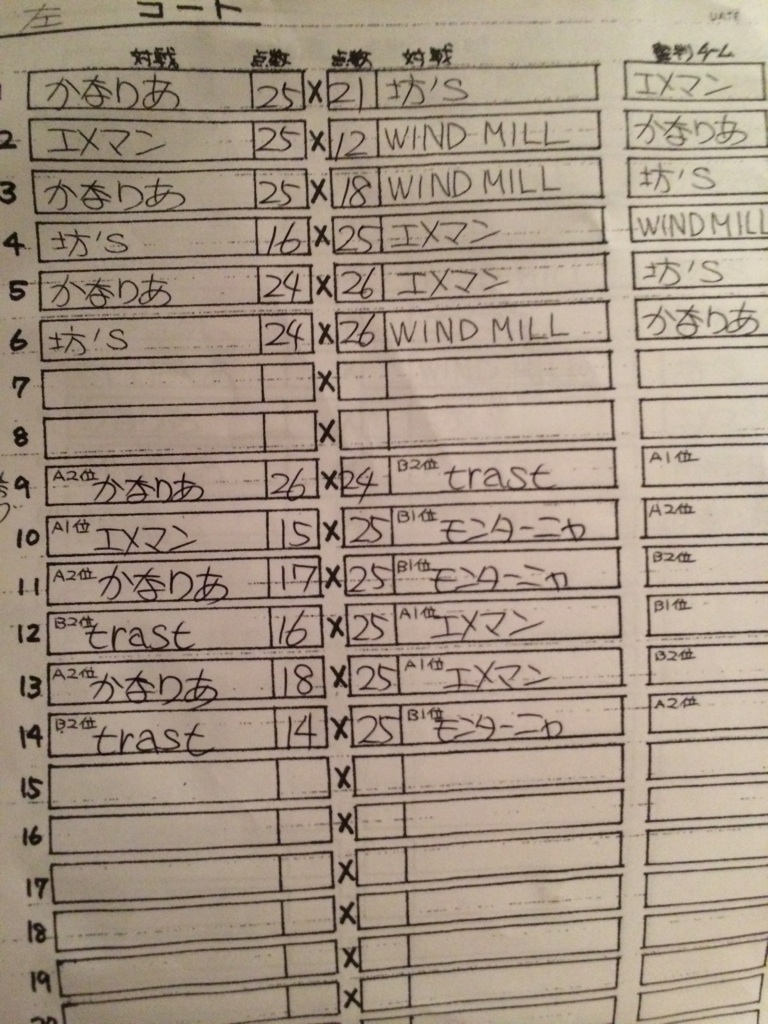 左 コート
対戦 点数 点数 対戦 審判チーム
1 かなりあ 25 × 21 坊'S エメマン
2 エメマン 25 × 12 WIND MILL かなりあ
3 かなりあ 25 × 18 WIND MILL 坊'S
4 坊'S 16 × 25 エメマン WIND MILL
5 かなりあ 24 × 26 エメマン 坊'S
6 坊'S 24 × 26 WIND MILL かなりあ
7 ×
8 ×
9 A2位 かなりあ 26 × 24 B2位 trast A1位
10 A1位 エメマン 15 × 25 B1位 モンターニャ A2位
11 A2位 かなりあ 17 × 25 B1位 モンターニャ B2位
12 B2位 trast 16 × 25 A1位 エメマン B1位
13 A2位 かなりあ 18 × 25 A1位 エメマン B2位
14 B2位 trast 14 × 25 B1位 モンターニャ A2位
15 ×
16 ×
17 ×
18 ×
19 ×
20 ×